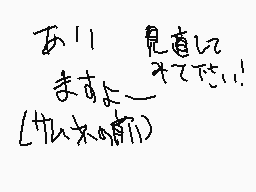 あり
ますよー
見直して
みて下さい!
(サムネの前)